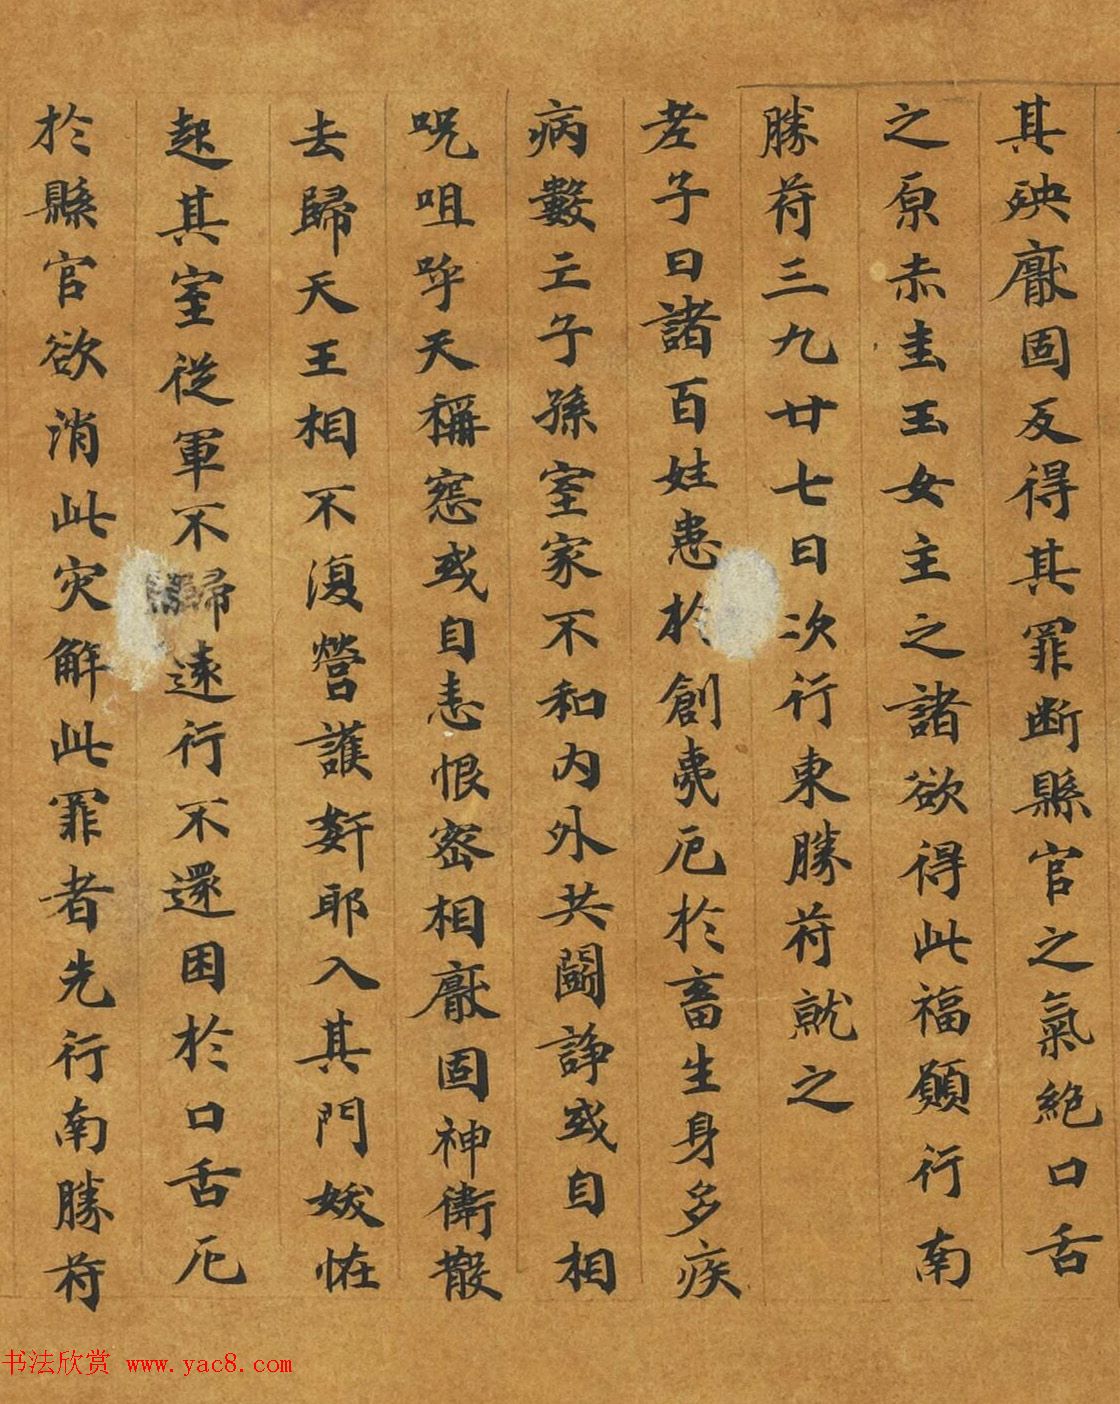 其殃厭固反得其罪断縣官之氣絶口舌
之原赤圭玉女主之諸欲得此福願行南
勝符三九廿七日次行東勝符就之
老子曰諸百姓患於創夷厄於畜生身多疾
病數亡子孫室家不和内外共鬭諍或自相
呪咀呼天稱怨或自恚恨密相厭固神衛散
去歸天王相不復營護姧耶入其門妭恠
起其室從軍不歸遠行不還困於口舌厄
於縣官欲消此灾解此罪者先行南勝符
书法欣赏 www.yac8.com